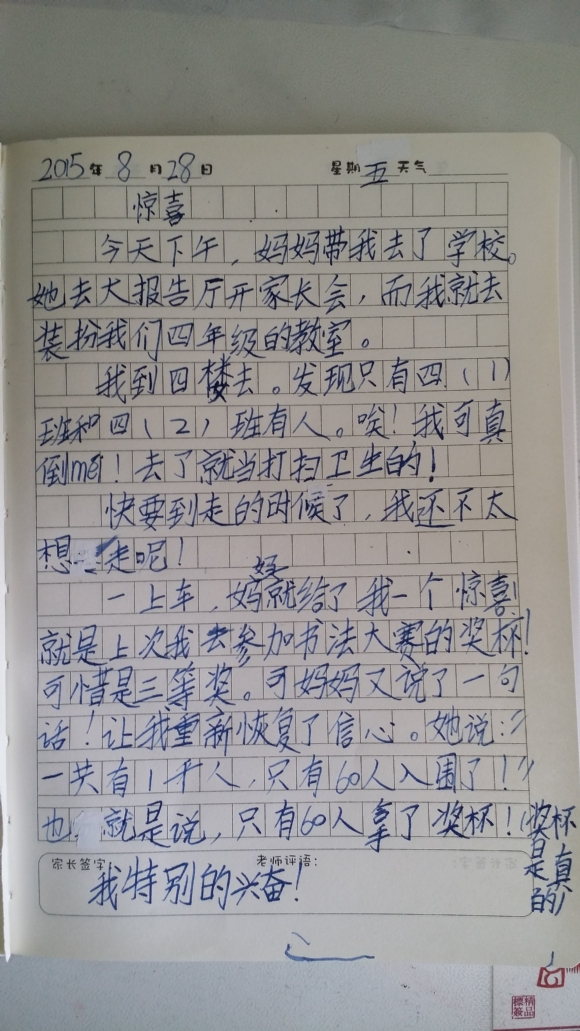 2015年8月28日 星期五天气
惊喜
今天下午，妈妈带我去了学校。
她去大报告厅开家长会，而我就去
装扮我们四年级的教室。
我到四楼去。发现只有四（1）
班和四（2）班有人。唉！我可真
倒mēi！去了就当打扫卫生的！
快要到走的时候了，我还不太
想走呢！
一上车，妈妈就给了我一个惊喜！
就是上次我去参加书法大赛的奖杯！
可惜是三等奖。可妈妈又说了一句
话！让我重新恢复了信心。她说：“
一共有1千人，只有60人入围了！”
也就是说，只有60人拿了奖杯！（奖杯
是真
的）
家长签字： 老师评语：
我特别的兴奋！